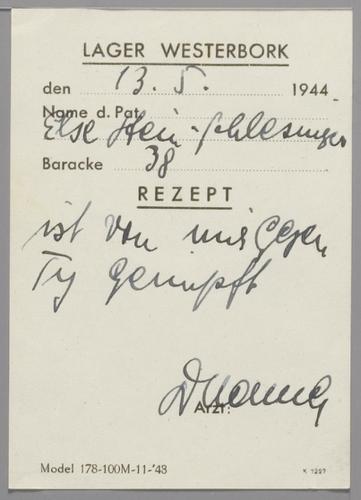 LAGER WESTERBORK
den 13. 5. 1944
Name d. Pat.
Else Stein-Schlesinger
Baracke 38
REZEPT
ist von mir gegen
Ty geimpft
Arzt:
Model 178-100M-11-'43 K 1227